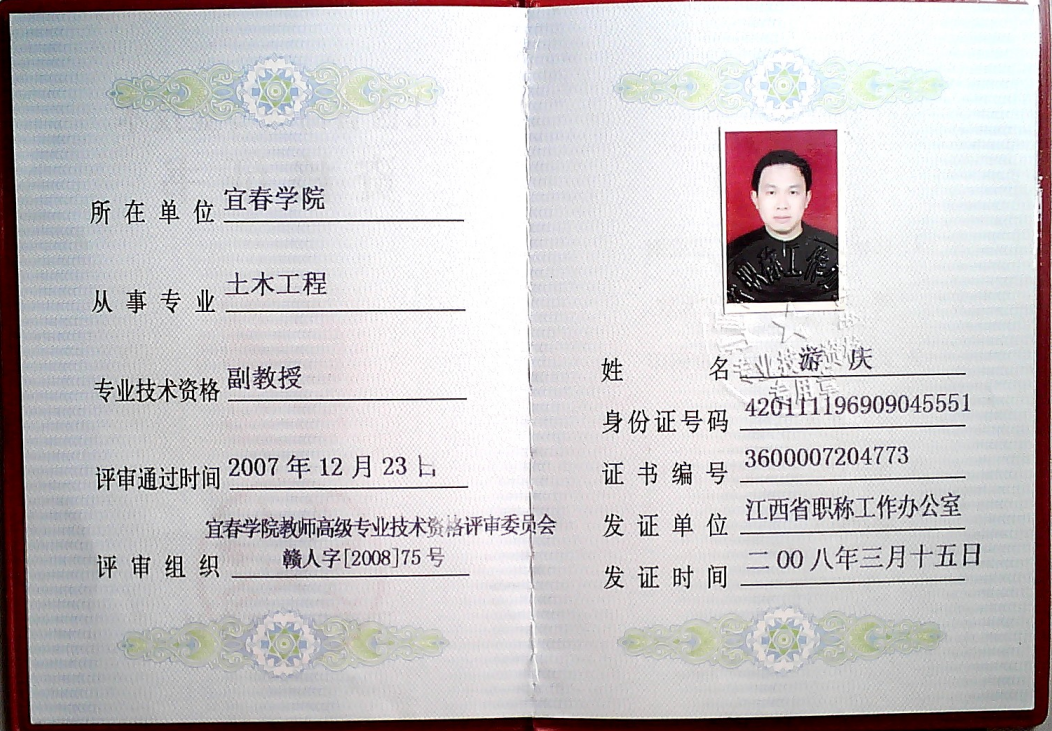 所在单位 宜春学院
从事专业 土木工程
专业技术资格 副教授
评审通过时间 2007 年 12 月 23 日
宜春学院教师高级专业技术资格评审委员会
评审组织 赣人字[2008]75 号
职称工作
专业技术资格
专用章
姓名 游庆
身份证号码 420111196909045551
证书编号 3600007204773
发证单位 江西省职称工作办公室
发证时间 二00八年三月十五日